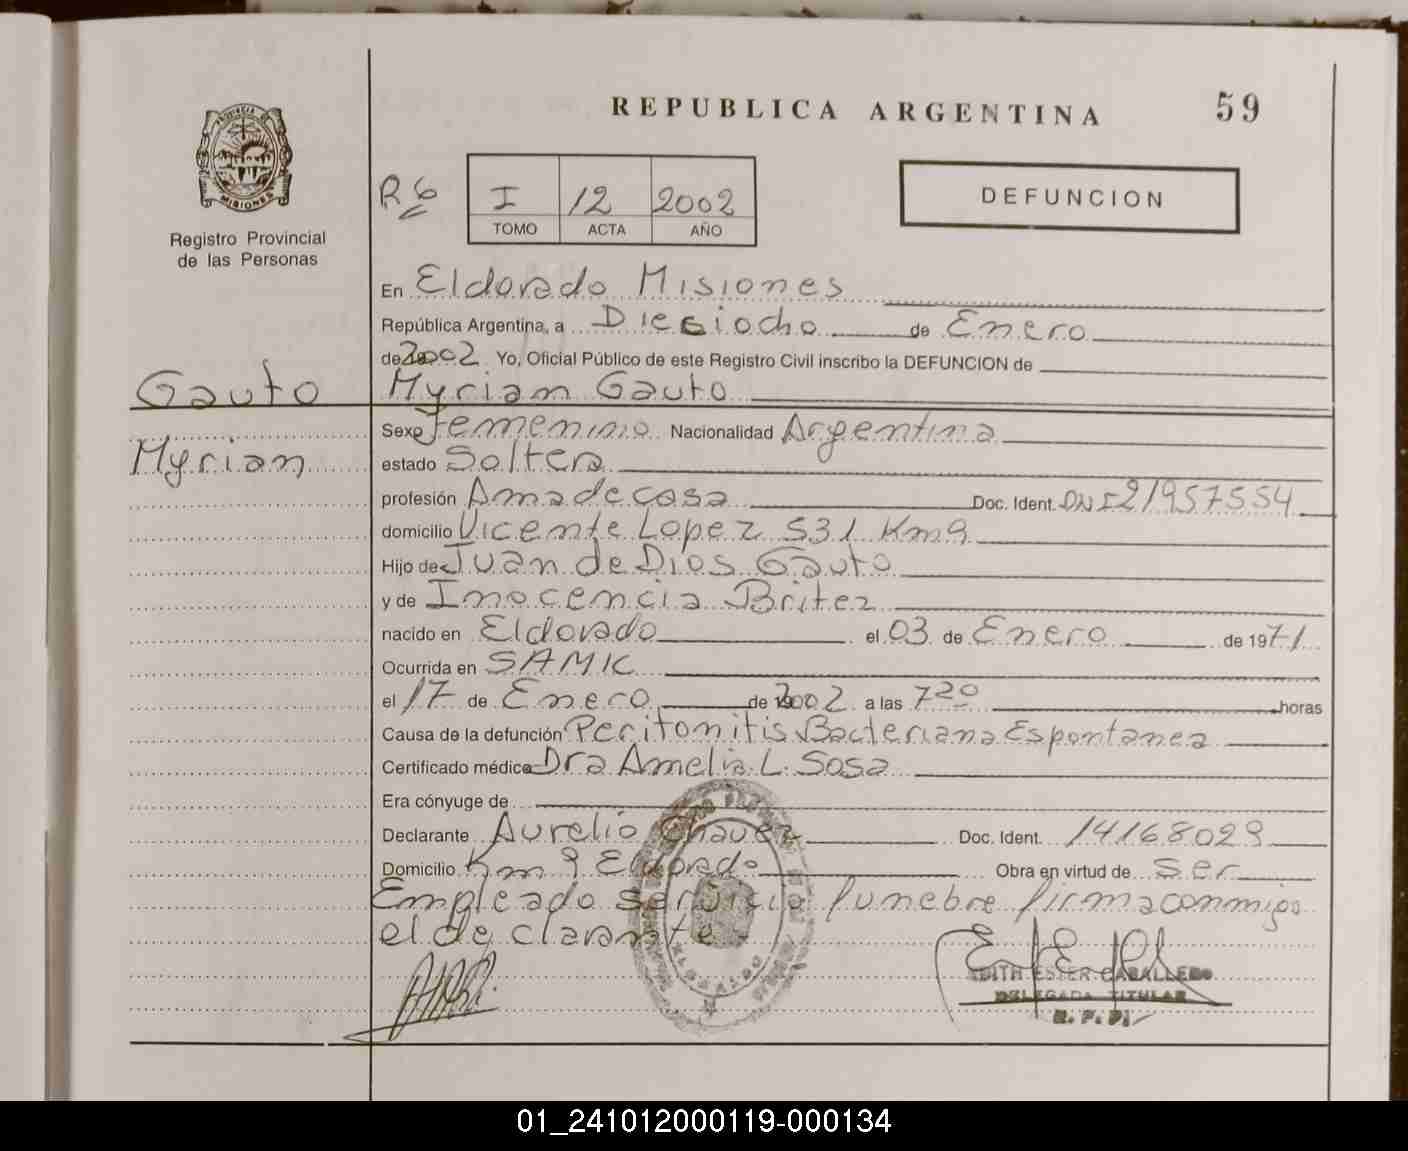 REPUBLICA ARGENTINA 59
DEFUNCION
R 6 I 12 2002
TOMO ACTA AÑO
Registro Provincial
de las Personas
En Eldorado Misiones
República Argentina, a Diesiocho de Enero
de 2002 Yo, Oficial Público de este Registro Civil inscribo la DEFUNCION de
Gauto Myrian Gauto
Sexo Femenino Nacionalidad Argentina
Myrian estado Soltera
profesión Ama de casa Doc. Ident. DNI 21957554
domicilio Vicente Lopez 531 Km 9
Hijo de Juan de Dios Gauto
y de Inocencia Britez
nacido en Eldorado el 03 de Enero de 1971
Ocurrida en SAMIC
el 17 de Enero de 2002 a las 7 20 horas
Causa de la defunción Peritonitis Bacteriana Espontanea
Certificado médico Dra Amelia L. Sosa
Era cónyuge de
Declarante Aurelio Chavez Doc. Ident. 14168029
Domicilio Km 9 Eldorado Obra en virtud de ser
Empleado servicio funebre firma conmigo
el declarante
EDITH ESTER CABALLERO
DELEGADA TITULAR
R. P. P.
ELDORADO
01_241012000119-000134